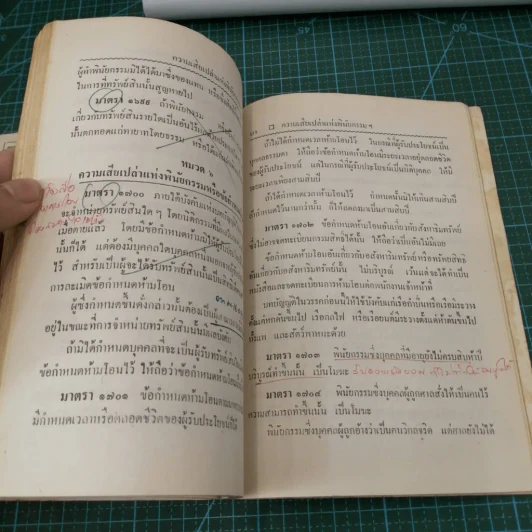 ความเสียเปล่าแห่งพินัย
ผู้ทำพินัยกรรมมิได้ได้มาซึ่งของแทน หรือ
ในการที่ทรัพย์สินนั้นสูญหายไป
มาตรา ๑๖๙๙ ถ้าพินัยกรรม
เกี่ยวกับทรัพย์สินรายใดเป็นอันไร้
นั้นตกทอดแก่ทายาทโดยธรรม หรือได้แก่
หมวด ๖
ความเสียเปล่าแห่งพินัยกรรมหรือข้อกำ
มาตรา ๑๗๐๐ ภายใต้บังคับแห่งบท
จะจำหน่ายทรัพย์สินใด ๆ โดยนิติกรรมที่มี
เมื่อตายแล้ว โดยมีข้อกำหนดห้ามมิ
นั้นก็ได้ แต่ต้องมีบุคคลใดบุคคลหนึ่งนอก
ไว้ สำหรับเป็นผู้จะได้รับทรัพย์สินนั้นเป็นสิทธิ
การละเมิดข้อกำหนดห้ามโอน
ผู้ซึ่งกำหนดขึ้นดังกล่าวนั้นต้องเป็นผู้
อยู่ในขณะที่การจำหน่ายทรัพย์สินนั้นมีผลบังคับ
ถ้ามิได้กำหนดบุคคลที่จะเป็นผู้รับทรัพย์สิน
ข้อกำหนดห้ามโอนไว้ ให้ถือว่าข้อกำหนดห้ามโอน
มาตรา ๑๗๐๑ ข้อกำหนดห้ามโอนตามมาตรา
มีกำหนดเวลาหรือตลอดชีวิตของผู้รับประโยชน์ก็ได้
ความเสียเปล่าแห่งพินัยกรรม ฯ
ถ้าไม่ได้กำหนดเวลาห้ามโอนไว้ ในกรณีที่ผู้รับประโยชน์เป็น
บุคคลธรรมดา ให้ถือว่าข้อกำหนดห้ามโอนมีระยะเวลาอยู่ตลอดชีวิต
ของผู้รับประโยชน์ แต่ในกรณีที่ผู้รับประโยชน์เป็นนิติบุคคล ให้มี
ระยะเวลาเพียงสามสิบปี
ถ้าได้กำหนดเวลาห้ามโอนไว้ กำหนดนั้นมิให้เกินสามสิบปี
ถ้ากำหนดไว้นานกว่านั้น ก็ให้ลดลงมาเป็นสามสิบปี
มาตรา ๑๗๐๒ ข้อกำหนดห้ามโอนอันเกี่ยวกับสังหาริมทรัพย์
ซึ่งไม่อาจจดทะเบียนกรรมสิทธิ์ได้นั้น ให้ถือว่าเป็นอันไม่มีเลย
ข้อกำหนดห้ามโอนอันเกี่ยวกับอสังหาริมทรัพย์หรือทรัพยสิทธิ
อันเกี่ยวกับอสังหาริมทรัพย์นั้น ไม่บริบูรณ์ เว้นแต่จะได้ทำเป็น
หนังสือและจดทะเบียนการห้ามโอนต่อพนักงานเจ้าหน้าที่
บทบัญญัติในวรรคก่อนนี้ให้ใช้บังคับแก่เรือกำปั่นหรือเรือมีระวาง
ตั้งแต่หกตันขึ้นไป เรือกลไฟ หรือเรือยนต์มีระวางตั้งแต่ห้าตันขึ้นไป
ทั้งแพ และสัตว์พาหนะด้วย
มาตรา ๑๗๐๓ พินัยกรรมซึ่งบุคคลที่มีอายุยังไม่ครบสิบห้าปี
บริบูรณ์ทำขึ้นนั้น เป็นโมฆะ
มาตรา ๑๗๐๔ พินัยกรรมซึ่งบุคคลผู้ถูกศาลสั่งให้เป็นคนไร้
ความสามารถทำขึ้นนั้น เป็นโมฆะ
พินัยกรรมซึ่งบุคคลผู้ถูกอ้างว่าเป็นคนวิกลจริต แต่ศาลยังไม่ได้